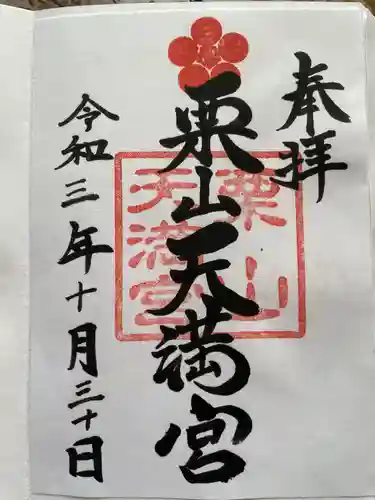 奉拝
栗山天満宮
栗山
天満宮
令和三年十月三十日